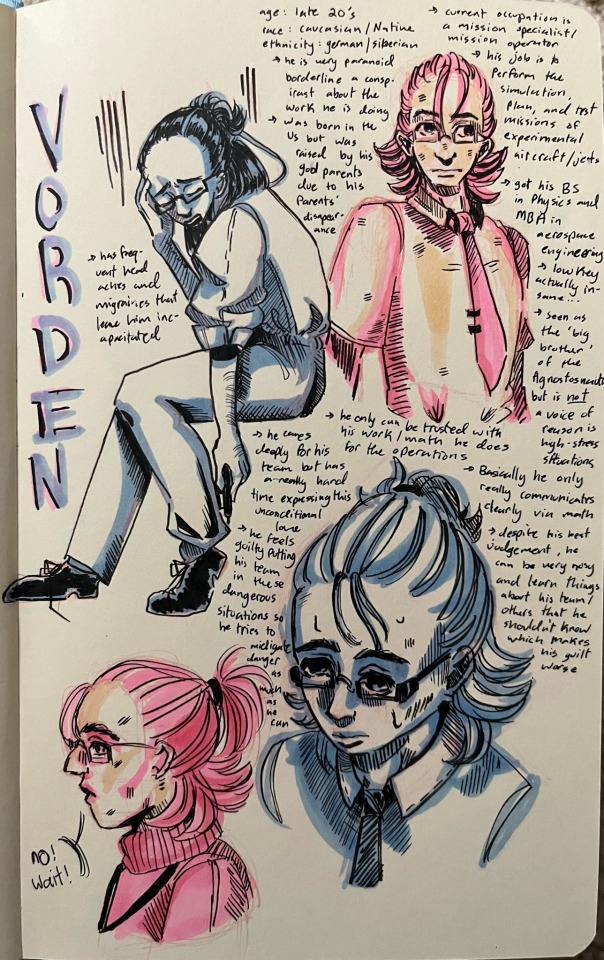 VORDEN
age: late 20's
race: caucasian/Native
ethnicity: german/siberian
→ he is very paranoid
borderline a consp-
irast about the
work he is doing
→ was born in the
US but was
raised by his
god parents
due to his
parents'
disappear-
ance
→ current occupation is
a mission specialist/
mission operator
→ his job is to
perform the
simulation,
plan, and test
missions of
experimental
aircraft/jets
→ got his BS
in Physics and
MBA in
aerospace
engineering
→ low key
actually in-
sane...
→ seen as
the 'big
brother'
of the
but is not
a voice of
reason is
high-stress
situations
→ has freq-
uent head
aches and
migraines that
leave him inc-
apacitated
→ he only can be trusted with
his work/math he does
for the operations
→ he cares
deeply for his
team but has
a really hard
time expressing this
unconditional
love
→ he feels
guilty putting
his team
in these
dangerous
situations so
he tries to
midigate
danger
as
much
as
he
can
→ Basically he only
really communicates
clearly via math
→ despite his best
judgement, he
can be very nosy
and learn things
about his team/
others that he
shouldn't know
which makes
his guilt
worse
no!
wait!